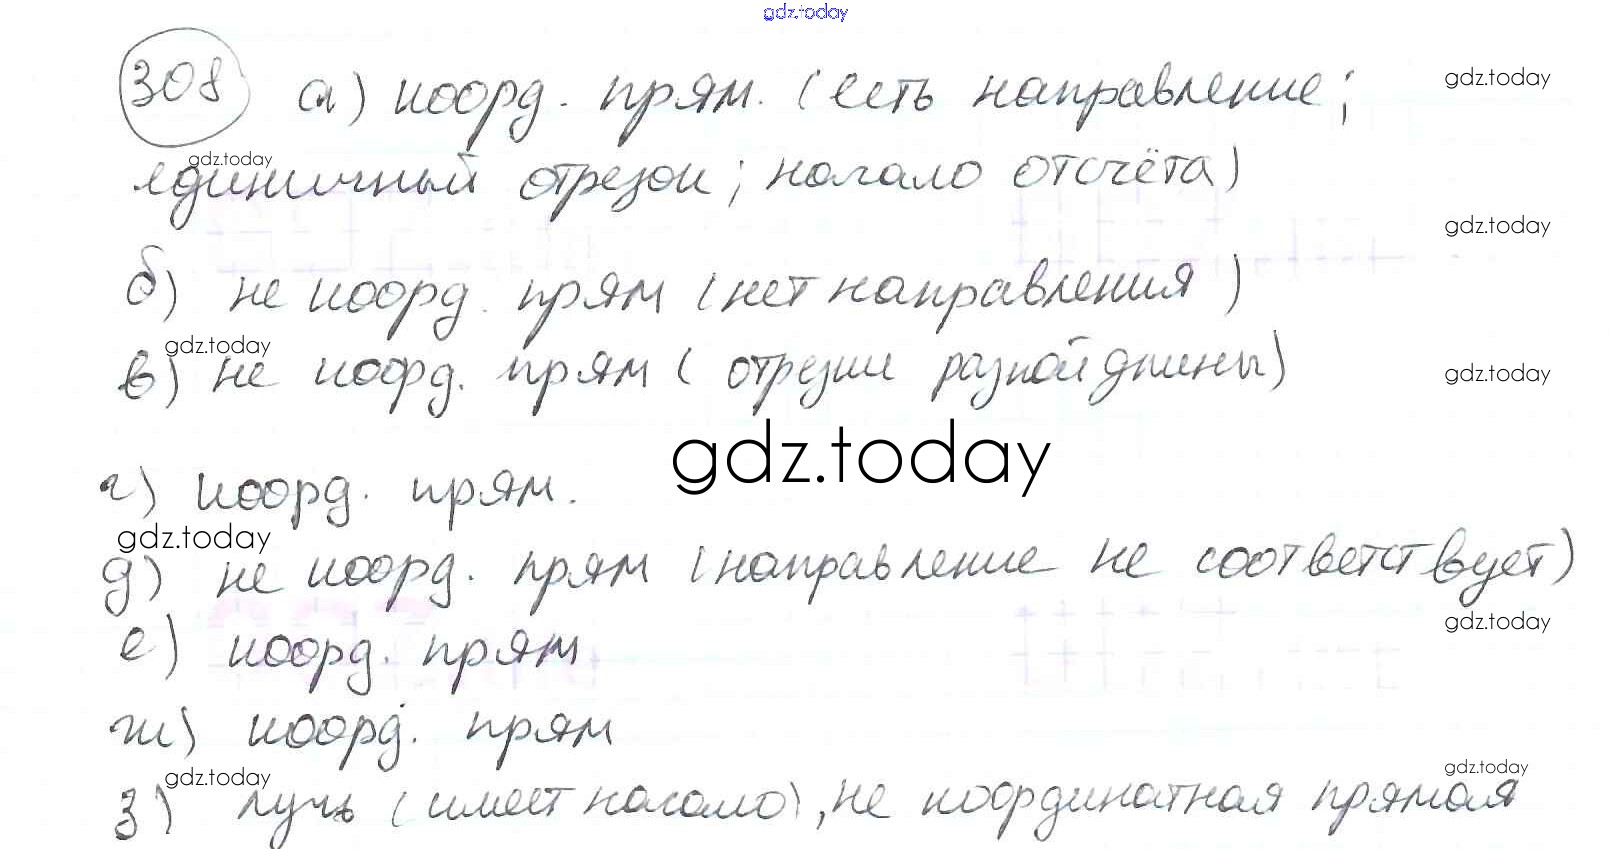 gdz.today
308 а) коорд. прям. (есть направление;
gdz.today
gdz.today
единичный отрезок; начало отсчёта)
gdz.today
б) не коорд. прям (нет направления)
gdz.today
в) не коорд. прям ( отрезки разной длины)
gdz.today
gdz.today
г) коорд. прям.
gdz.today
д) не коорд. прям (направление не соответствует)
gdz.today
е) коорд. прям
ж) коорд. прям
gdz.today
gdz.today
з) луч (имеет начало), не координатная прямая